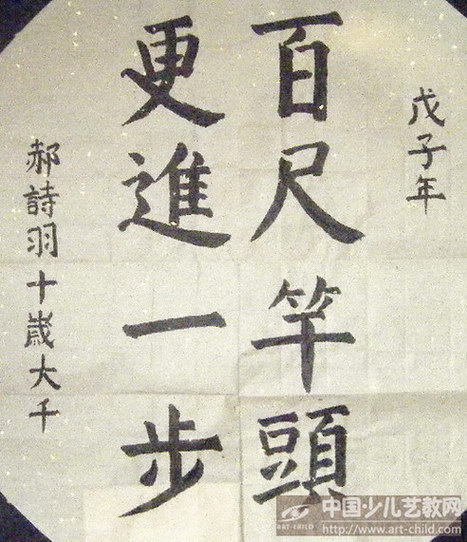 戊子年
百尺竿頭
更進一步
郝詩羽十歲大千
中国少儿艺教网
ART-CHILD
http://www.art-child.com